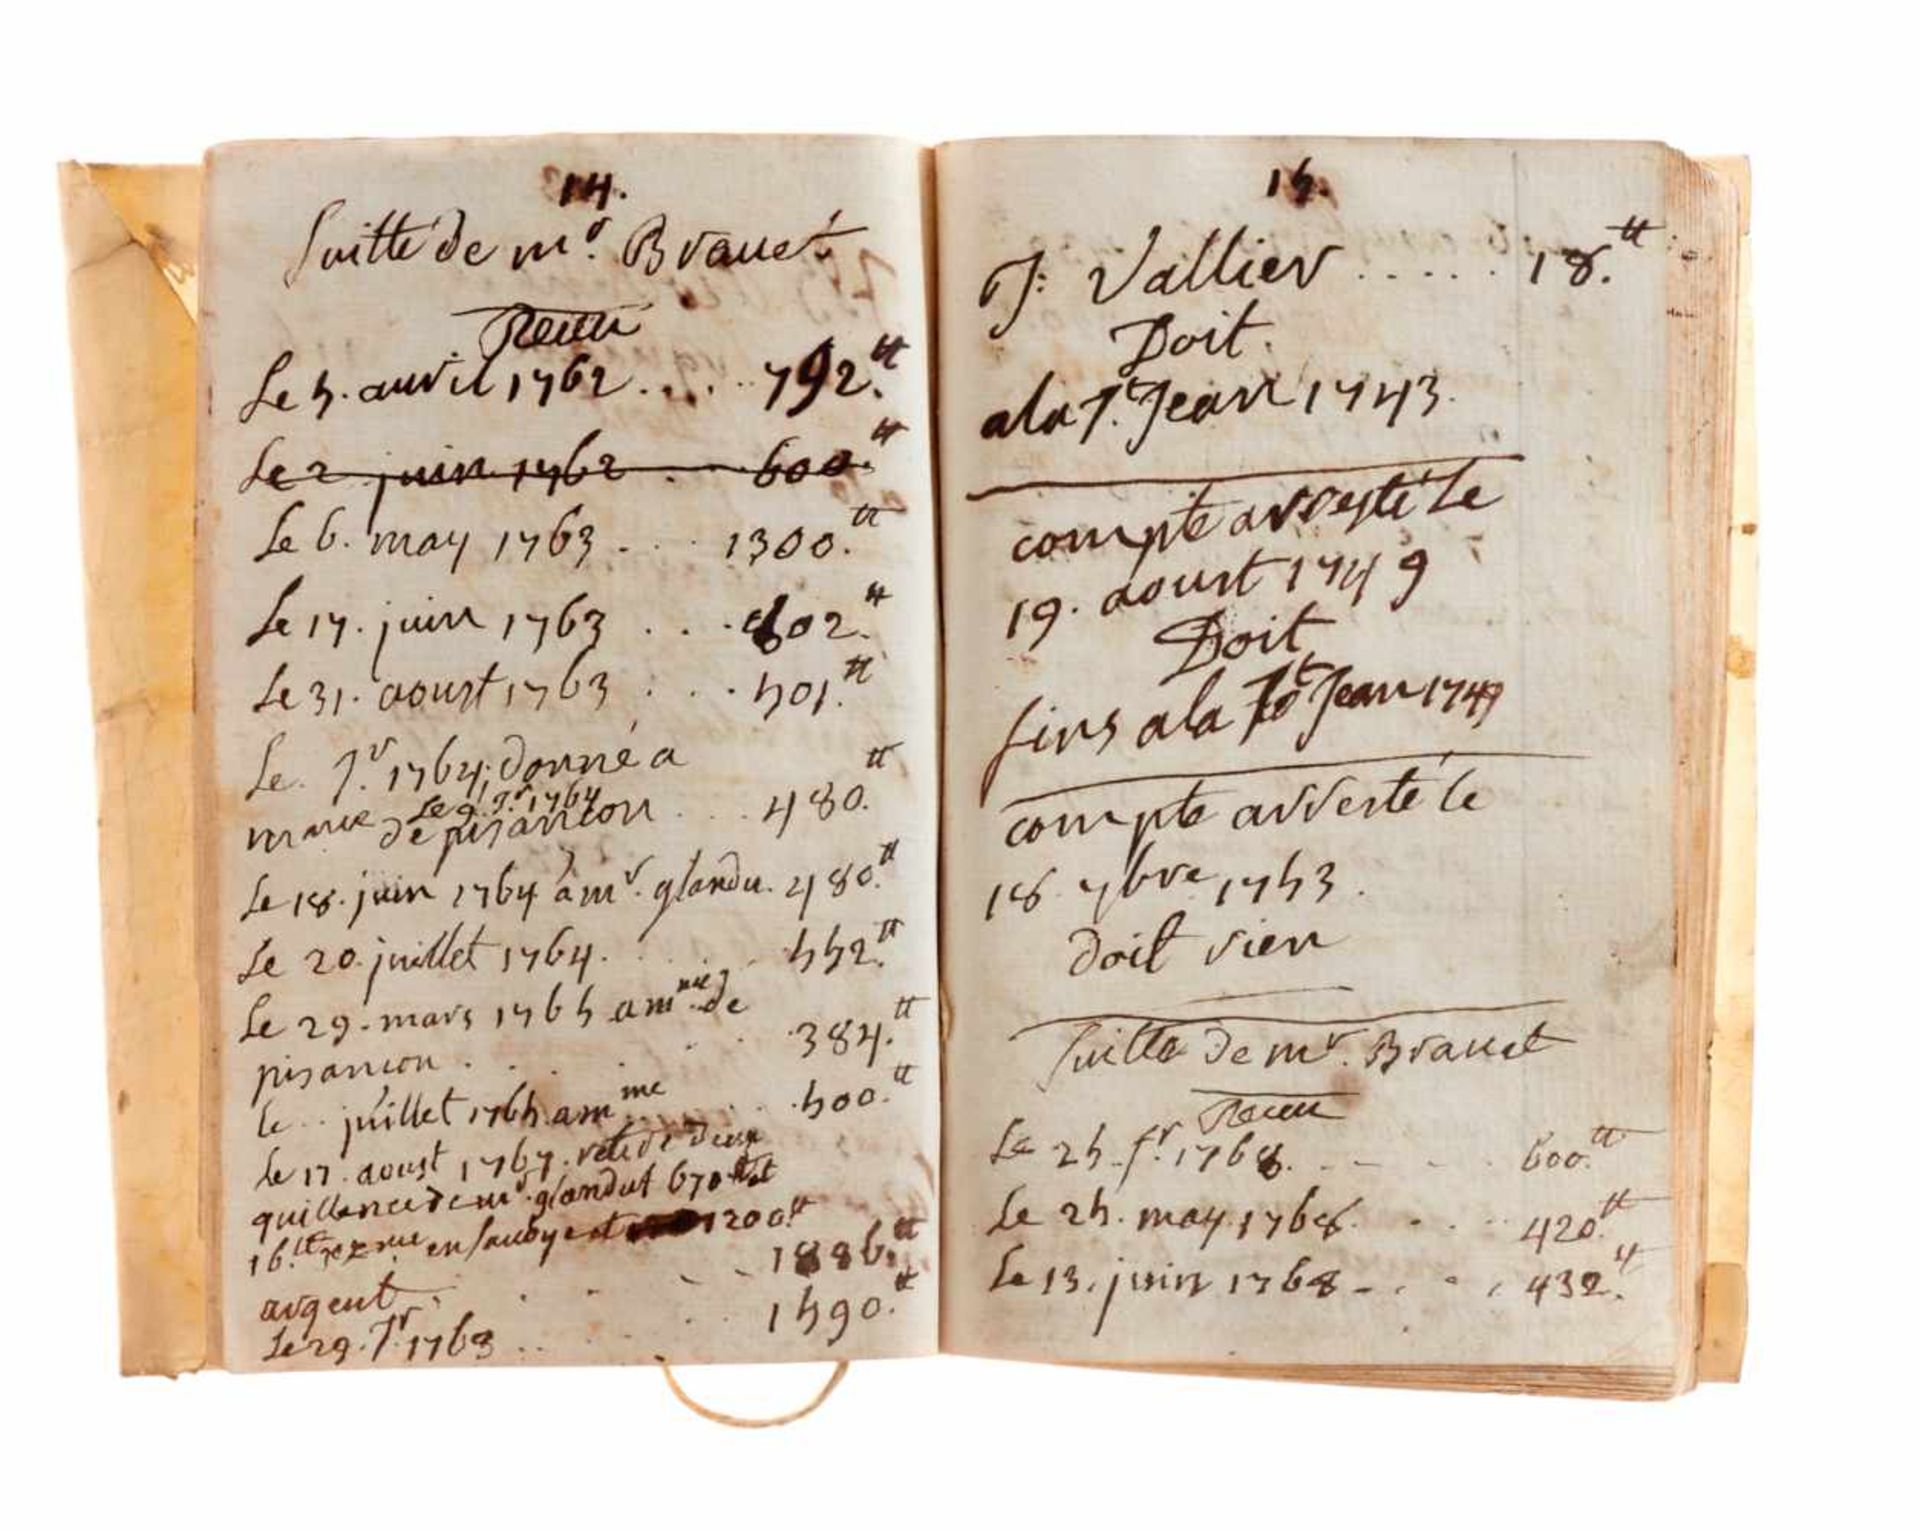 14.
Suitte de mr. Brauet
Receu
Le 5. auvril 1762 .... 792.tt
Le 2 juin 1762 . 600.tt
Le 6. may 1763 ... 1300.tt
Le 17. juin 1763 ... 802.tt
Le 31. aoust 1763 ... 501.tt
Le. J.r 1764; donné a
Le 9. J.r 1764
de pisancon ... 480.tt
Le 18. juin 1764 a mr. glandu. 480.tt
Le 20 juillet 1764. ... 552.tt
Le 29. mars 1765 a mme. de
pisancon . . . 384.tt
le .. juillet 1765 a mme ... 500.tt
Le 17. aoust 1767. de deux
quillance de mr. glandut 670tt et
16.tt en 1200.tt
argent . . . 1886.tt
Le 29. J.r 1763 .. 1590.tt
15.
J: Vallier ..... 18.tt
Doit.
a la St. Jean 1743.
compte arresté le
19. aoust 1749
Doit
a la St Jean 1749
compte arresté le
18 7bre 1753.
doit rien
Suitte de mr. Brauet
Receu
Le 25. f.r 1768. . . . 600.tt
Le 25. may 1768. . . . 420.tt
Le 13. juin 1768 . . . 432.tt